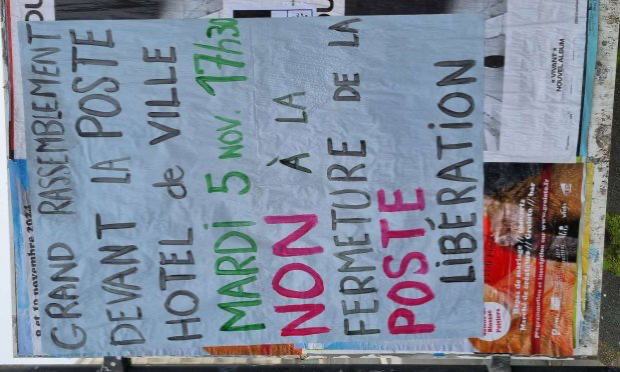 GRAND RASSEMBLEMENT
DEVANT LA POSTE
HOTEL de VILLE
MARDI 5 NOV. 17h30
NON À LA
FERMETURE DE LA
POSTE
LIBÉRATION
9 et 10 novembre 2024
« VIVANT »
NOUVEL ALBUM
Marché de créatrices // Graouin // bar
programmation et inscription sur